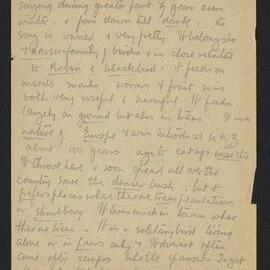 singing during greater part of year even
winter, & from dawn till dark, its
song is varied & very pretty. It belongs to
Thrush family of birds & is close related
to Robin & blackbird. It feeds on
insects snails worms & fruit so is
both very useful & harmful. It feeds
largely on ground but also in trees. It is a
native of Europe & was introduced to N.Z
about 100 years ago to eat up insects
It thrived here & soon spread all over the
country save the denser bush. but it
prefers places where there are trees plantations
or shrubbery. It lives much in towns where
there are trees. It is a solitary bird living
alone or in pairs only & does not often
come after scraps like the sparrow. To get